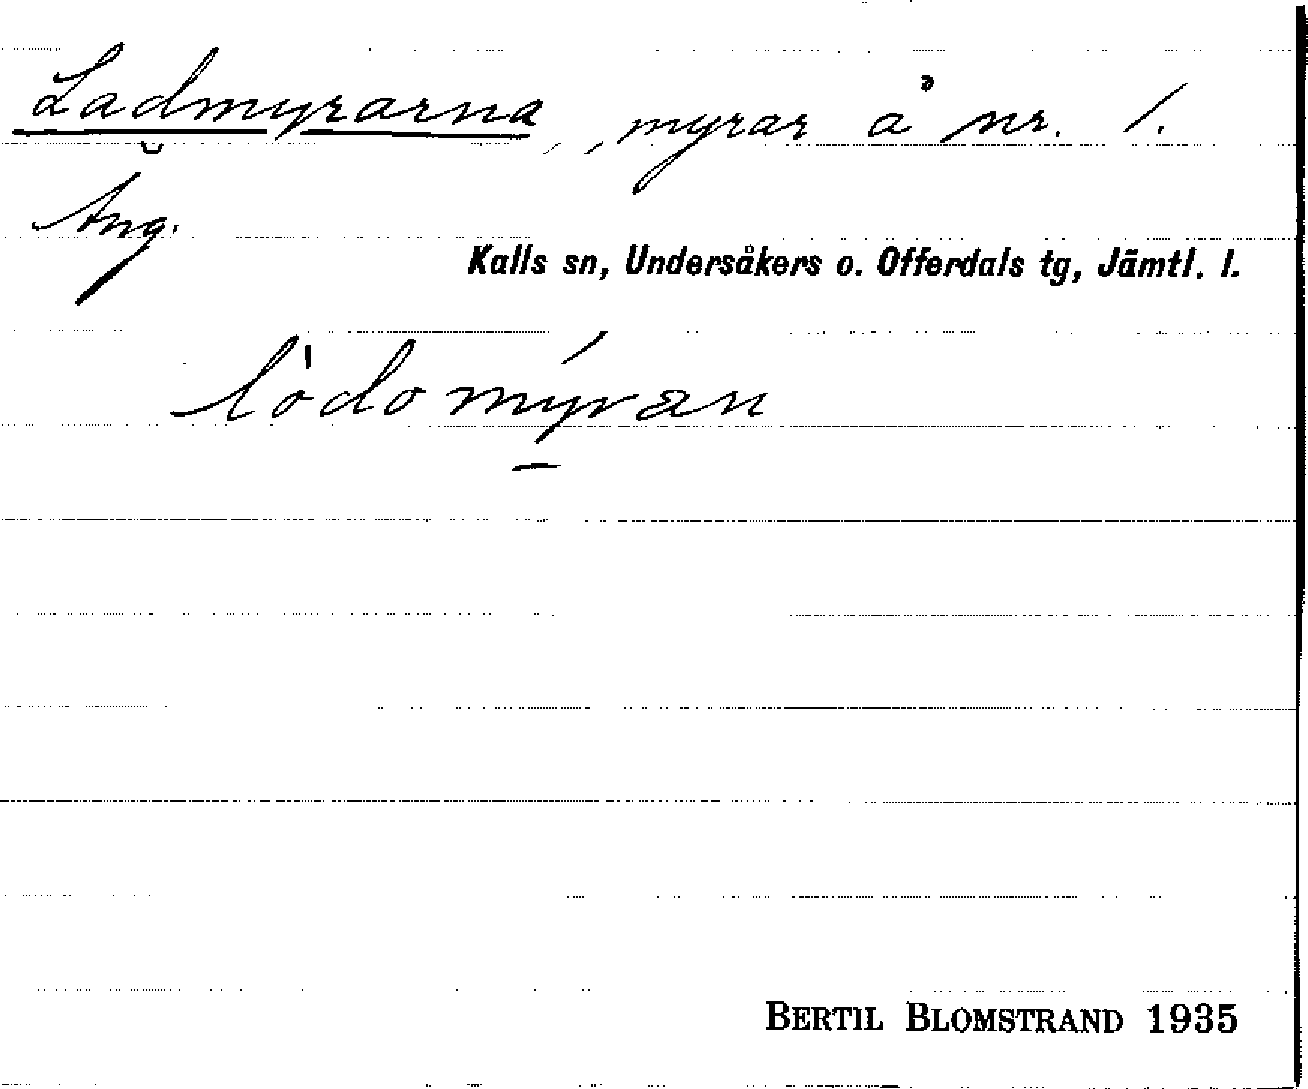 Ladmyrarna, myrar å nr. 1.
Äng.
Kalls sn, Undersåkers o. Offerdals tg, Jämtl. l.
lòdomýran
BERTIL BLOMSTRAND 1935